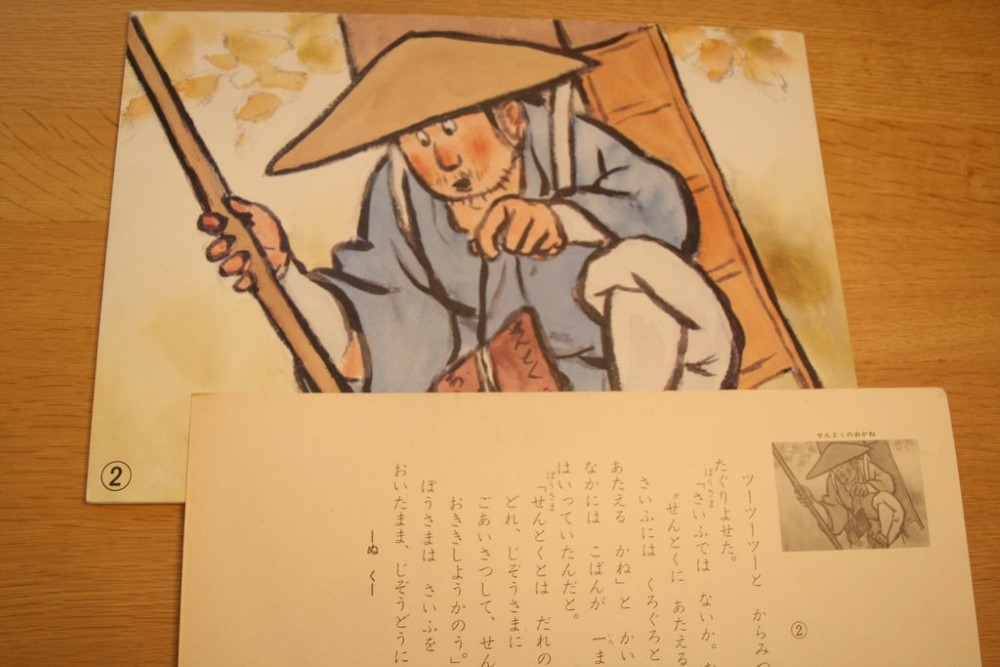 ②
せんとく
せんとくのおかね
②
ツーツーツーと からみつ
たぐりよせた。
ぼうさま
「さいふでは ないか。
“せんとくに あたえる
さいふには くろぐろと
あたえる かね」と かい
なかには こばんが 一ま
はいっていたんだと。
ぼうさま
「せんとくとは だれの
どれ、じぞうさまに
ごあいさつして、せん
おききしようかのう。」
ぼうさまは さいふを
おいたまま、じぞうどうに
―ぬ く―